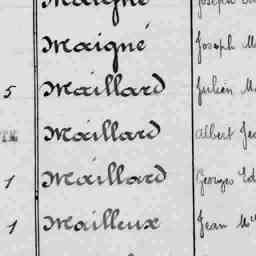 Maigné Joseph
Maigné Joseph
5 Maillard Julien
Maillard Albert
1 Maillard Georges
1 Mailleux Jean